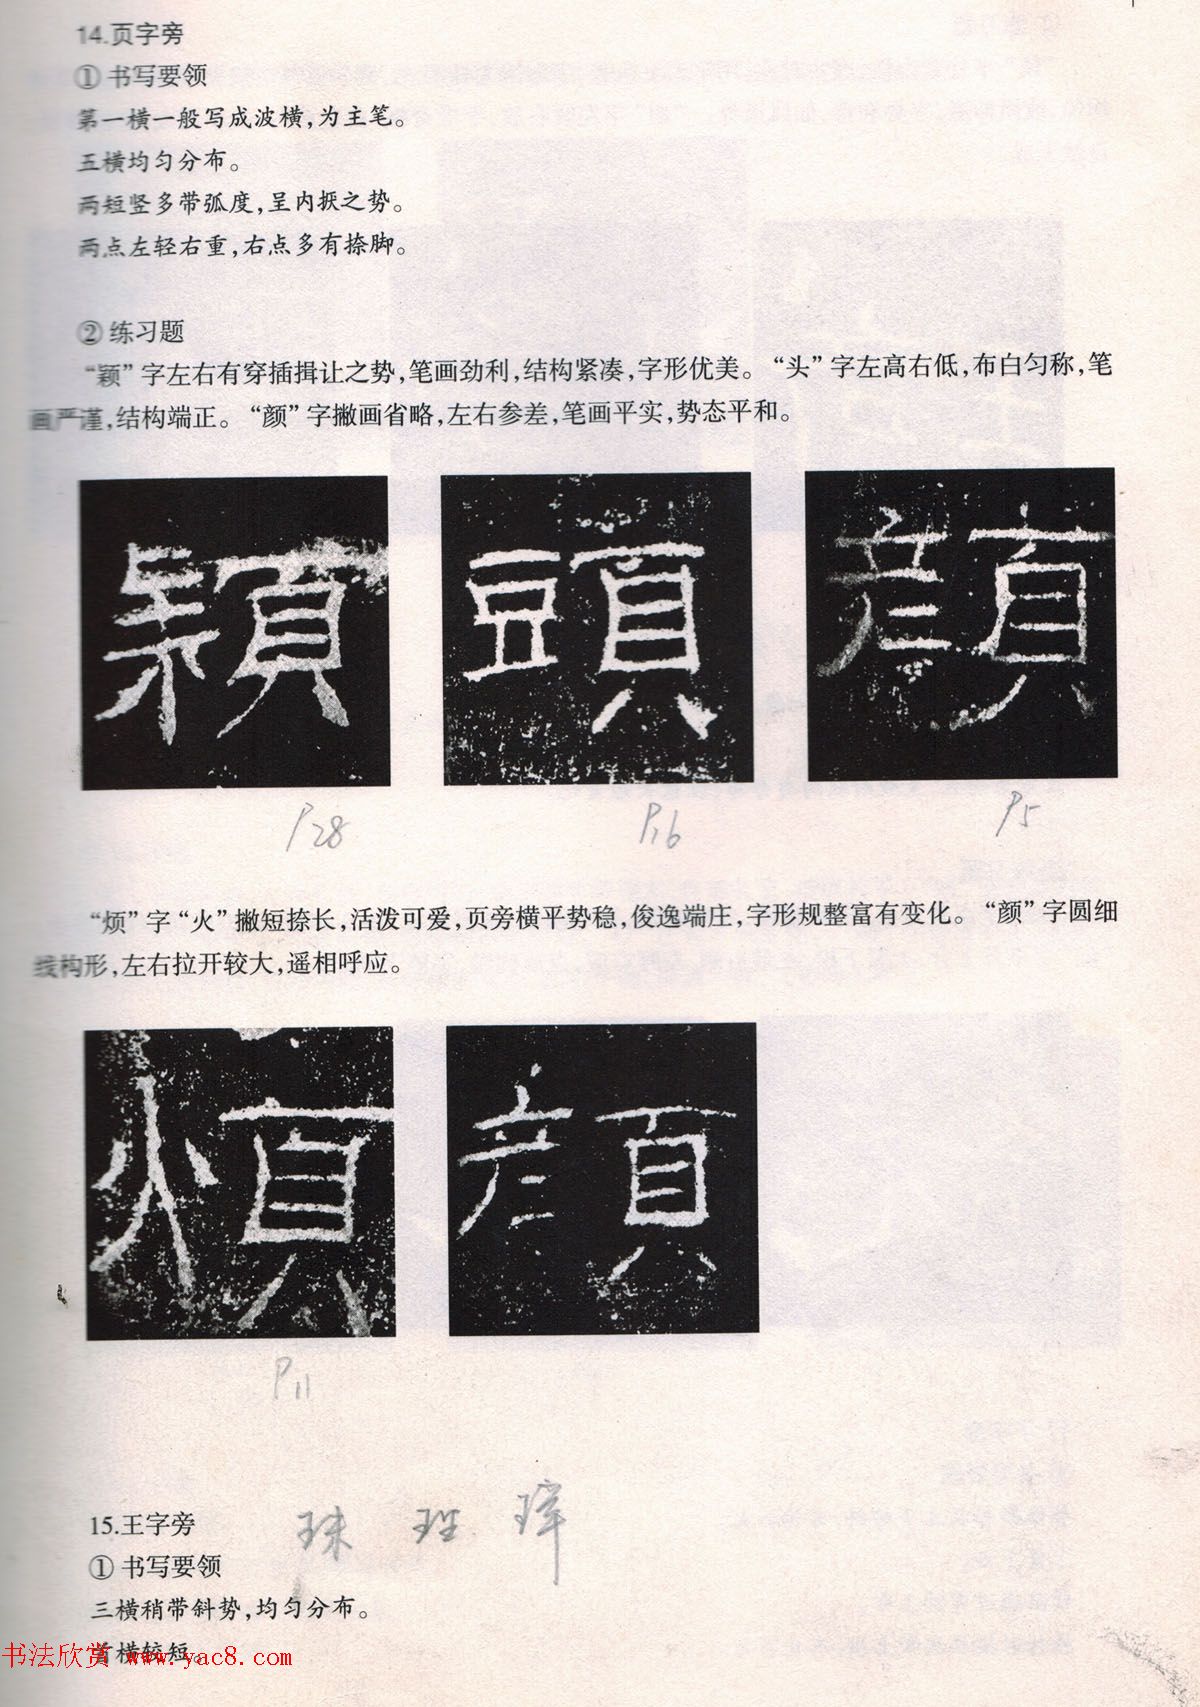 14.页字旁
① 书写要领
第一横一般写成波横,为主笔。
五横均匀分布。
两短竖多带弧度,呈内抿之势。
两点左轻右重,右点多有捺脚。
② 练习题
“颖”字左右有穿插揖让之势,笔画劲利,结构紧凑,字形优美。“头”字左高右低,布白匀称,笔
画严谨,结构端正。“颜”字撇画省略,左右参差,笔画平实,势态平和。
頴 頭 顔
P28 P16 P5
“烦”字“火”撇短捺长,活泼可爱,页旁横平势稳,俊逸端庄,字形规整富有变化。“颜”字圆细
线构形,左右拉开较大,遥相呼应。
煩 顔
P11
15.王字旁 珠
① 书写要领
三横稍带斜势,均匀分布。
首横较短。
书法欣赏 www.yac8.com